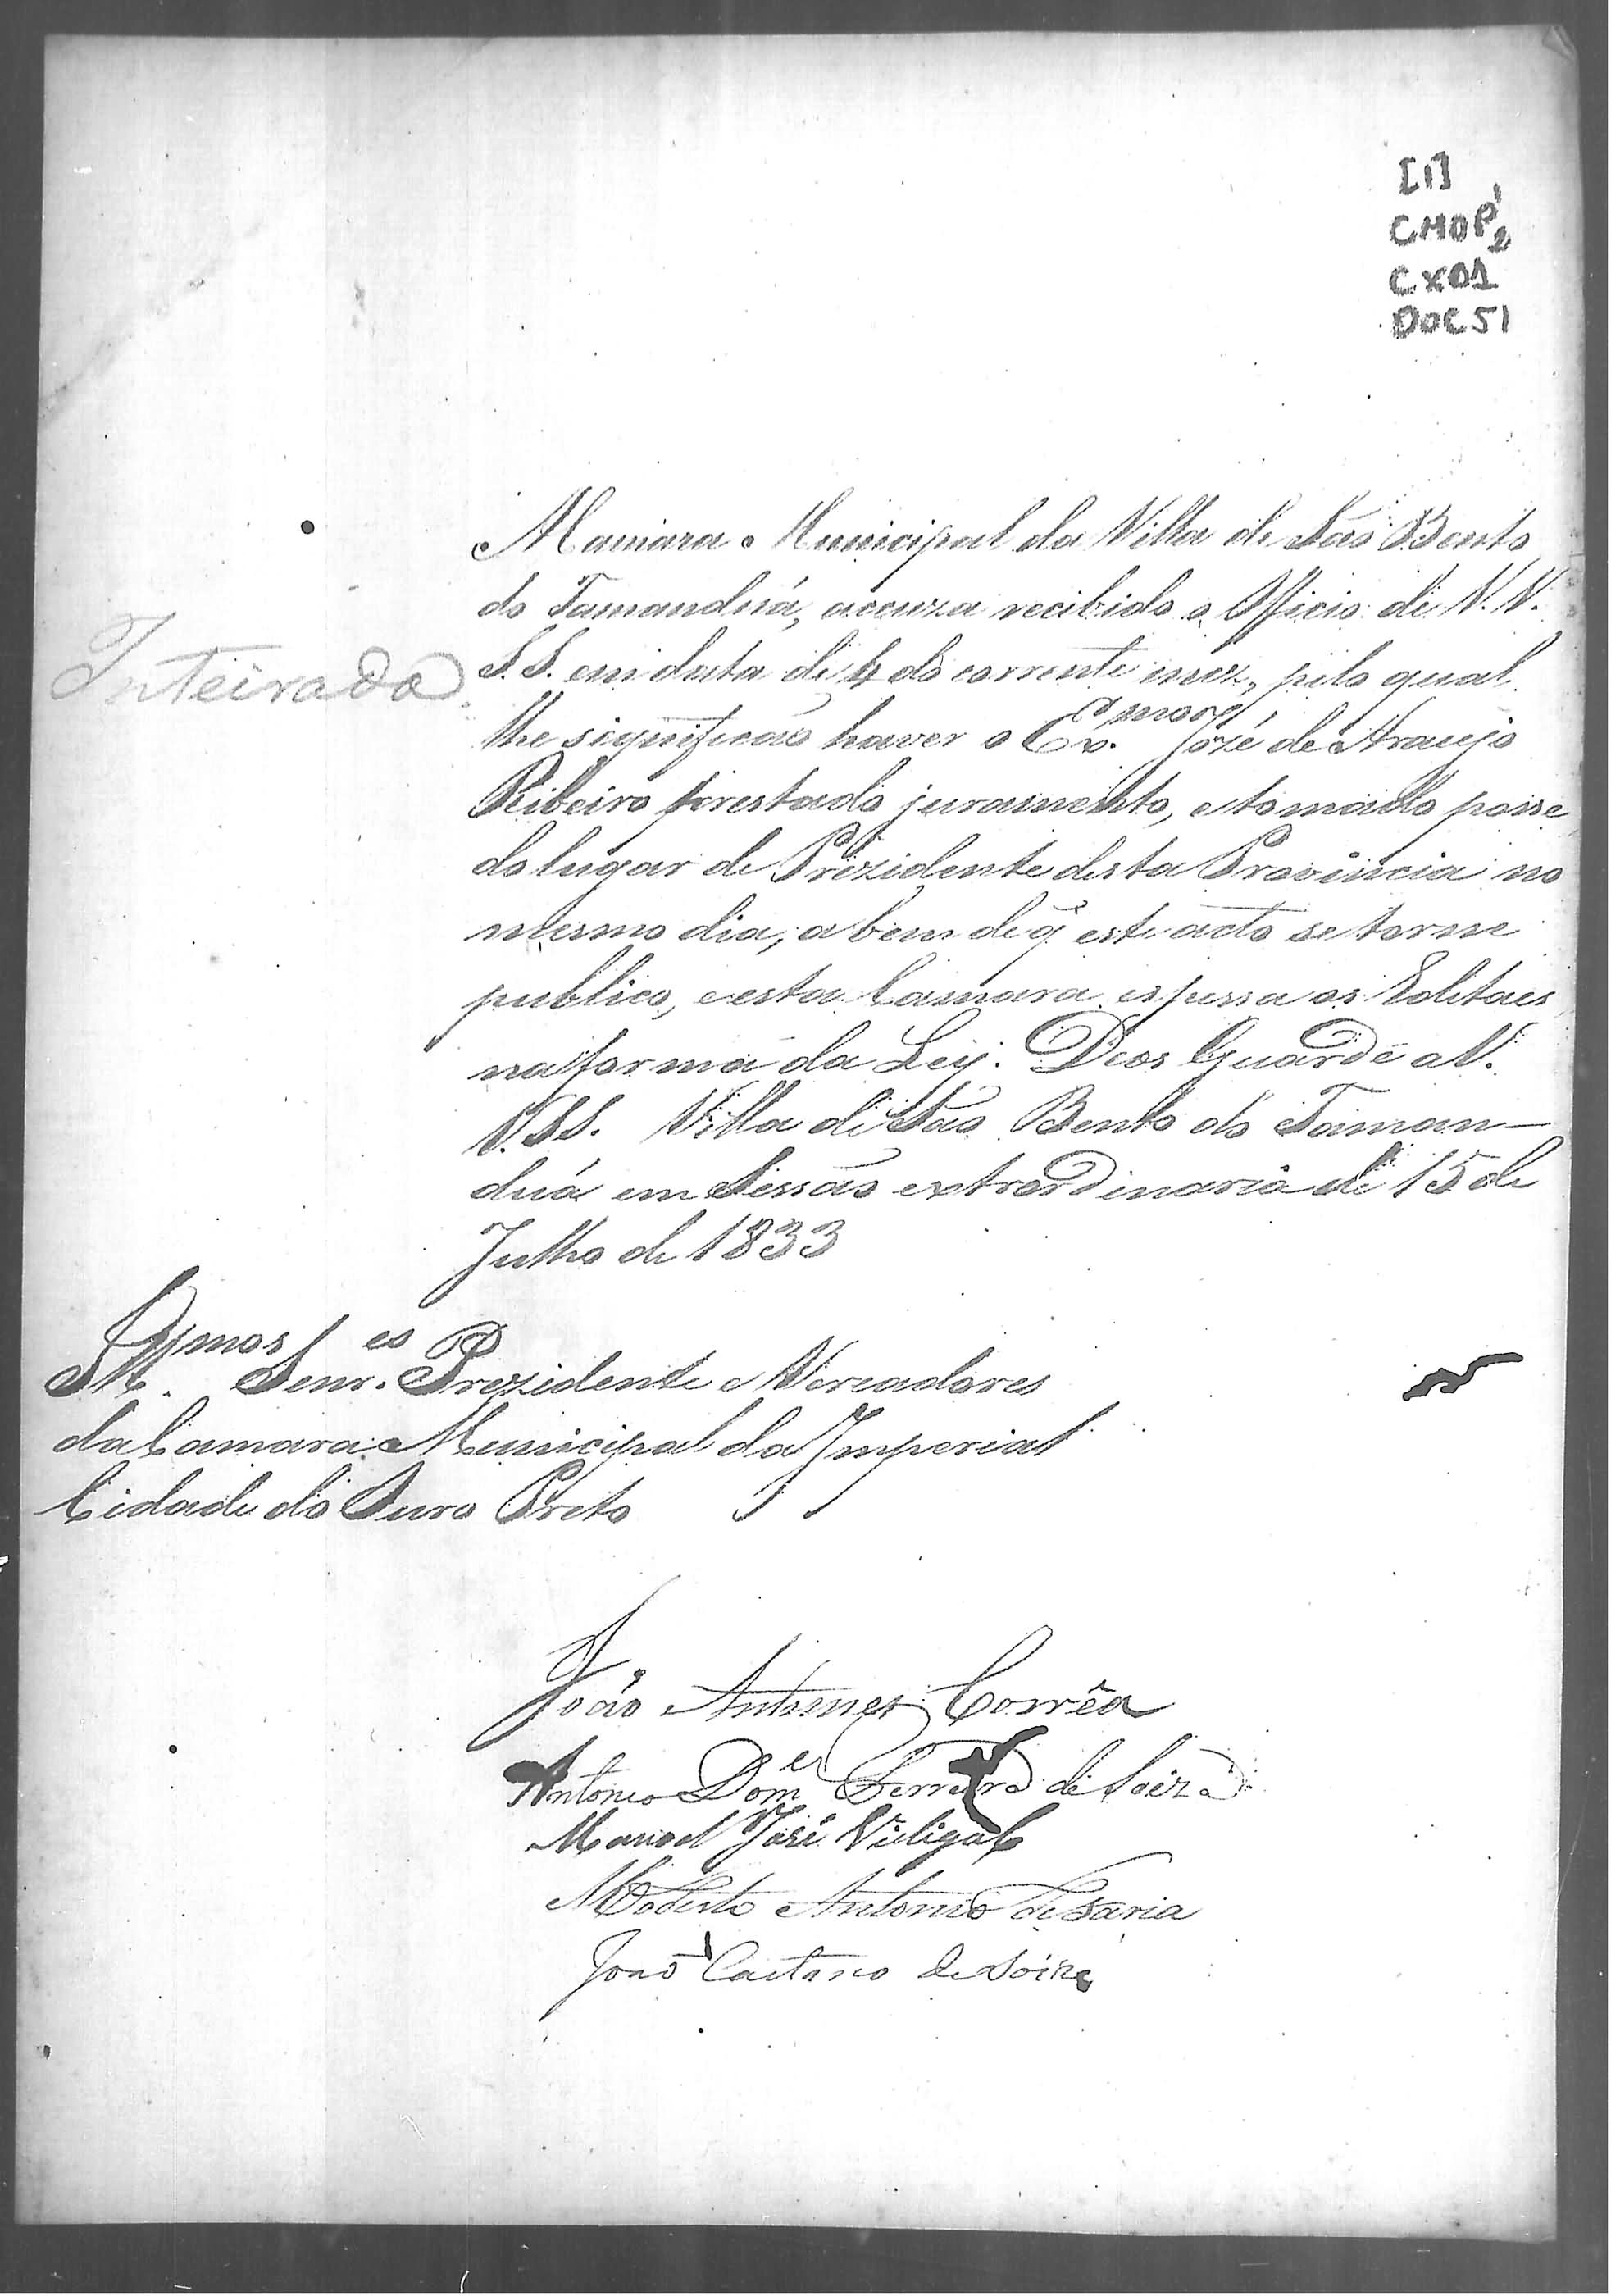 [1]
CMOP2
CX01
DOC 51
A Camara Municipal da Villa de São Bento
do Tamanduá, accuza recibido o Officio de V. V.
S. S. em data de 4 do corrente mez, pelo qual
Inteirado
lhe significão haver o Exmo. José de Araujo
Ribeiro prestado juramento, e tomado posse
do lugar de Prezidente desta Provincia no
mesmo dia, a bem de q̃ este acto se torne
publico, e esta Camara espessa os Editaes
na forma da Ley. Deos Guarde a V.
V. SS. Villa de São Bento do Taman-
duá em Sessão extrordinaria de 15 de
Julho de 1833
Illmos. Senres. Prezidente e Vereadores
da Camara Municipal da Imperial
Cidade do Ouro Preto
João Antunes Corrêa
Antonio Domes Ferreira de Soiza
Manoel José Vidigal
Modesto Antonio de Faria
João Caetano de Soiza